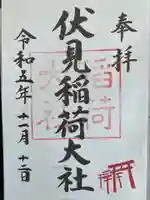 奉拝
伏見稲荷大社
令和五年十一月十二日
稲荷
大社